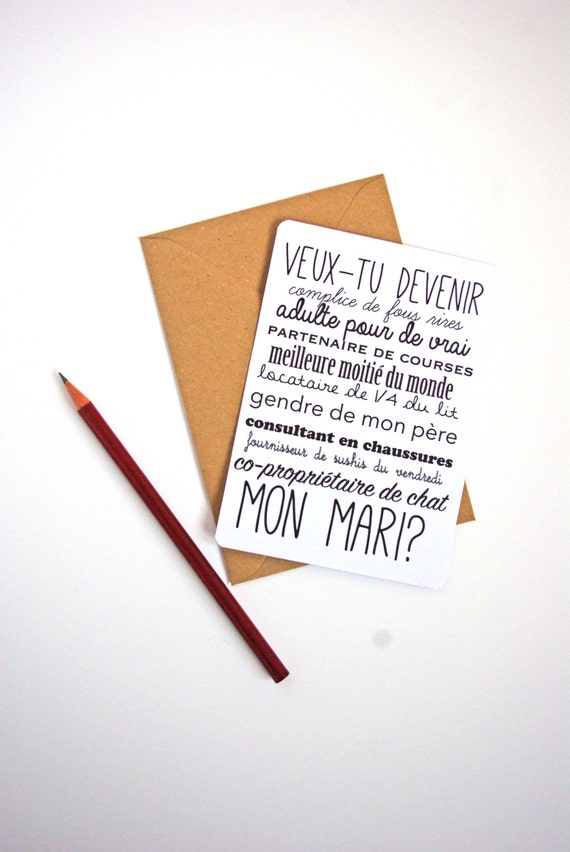 VEUX-TU DEVENIR
complice de fous rires
adulte pour de vrai
PARTENAIRE DE COURSES
meilleure moitié du monde
locataire de 1/4 du lit
gendre de mon père
consultant en chaussures
fournisseur de sushis du vendredi
co-propriétaire de chat
MON MARI?